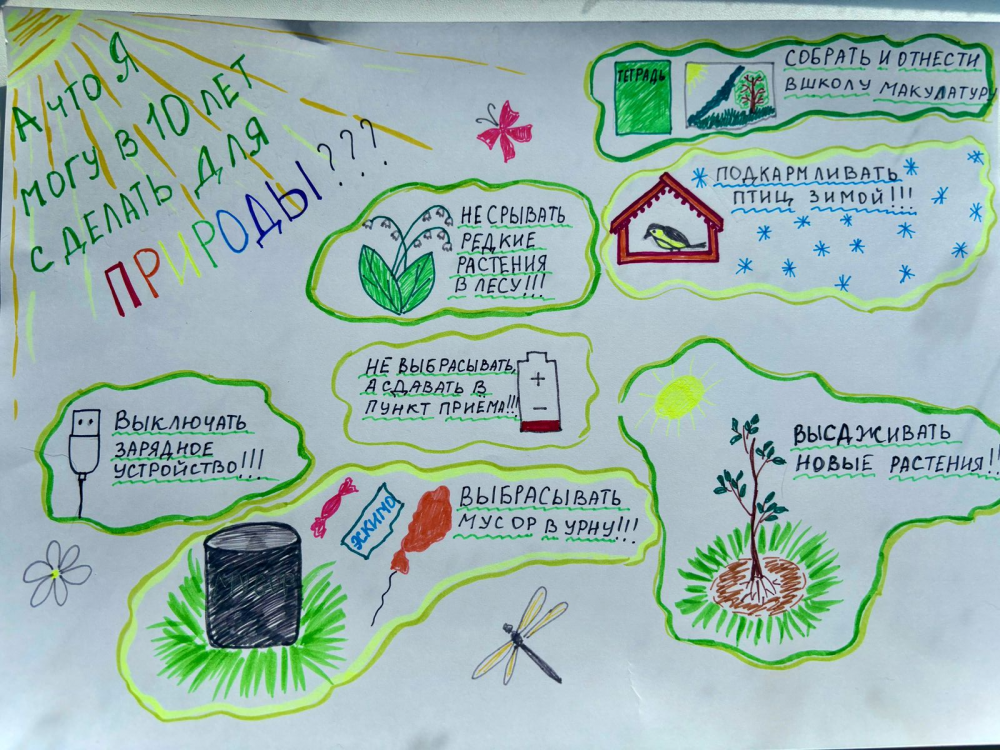 А ЧТО Я
МОГУ В 10 ЛЕТ
СДЕЛАТЬ ДЛЯ
ПРИРОДЫ???
ТЕТРАДЬ
СОБРАТЬ И ОТНЕСТИ
В ШКОЛУ МАКУЛАТУРУ
ПОДКАРМЛИВАТЬ
ПТИЦ ЗИМОЙ!!!
НЕ СРЫВАТЬ
РЕДКИЕ
РАСТЕНИЯ
В ЛЕСУ!!!
НЕ ВЫБРАСЫВАТЬ,
А СДАВАТЬ В
ПУНКТ ПРИЕМА!!!
+
−
ВЫКЛЮЧАТЬ
ЗАРЯДНОЕ
УСТРОЙСТВО!!!
ВЫСАЖИВАТЬ
НОВЫЕ РАСТЕНИЯ!!
ЭКИМО
ВЫБРАСЫВАТЬ
МУСОР В УРНУ!!!